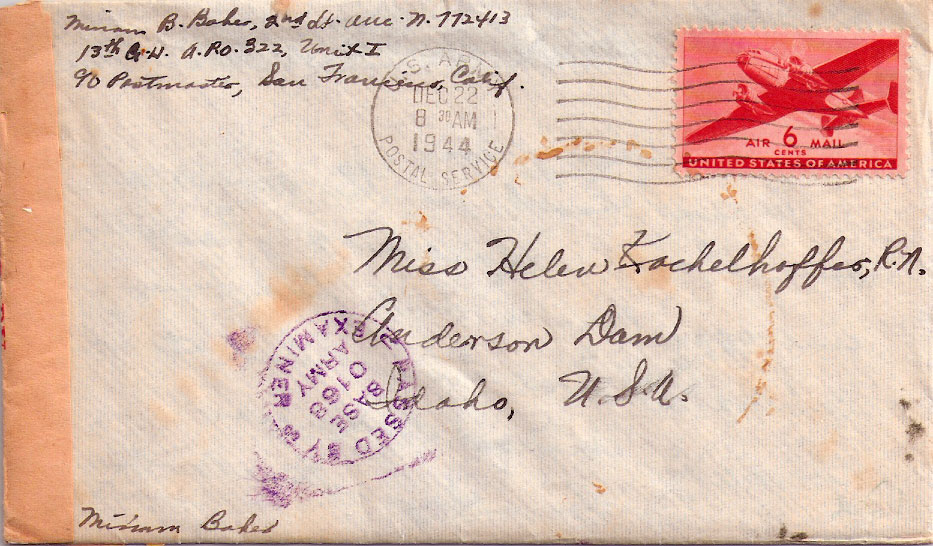 Miriam B. Baker, 2nd Lt. ANC. N. 772413
13th G.H. A.P.O. 322, Unit I
℅ Postmaster, San Francisco, Calif.
U.S. ARMY
DEC 22
8 30 AM
1944
POSTAL SERVICE
AIR 6 MAIL
CENTS
UNITED STATES OF AMERICA
Miss Helen Kachelhoffer, R.N.
Anderson Dam
Idaho, U.S.A.
PASSED BY
BASE
0168
ARMY
EXAMINER
Miriam Baker